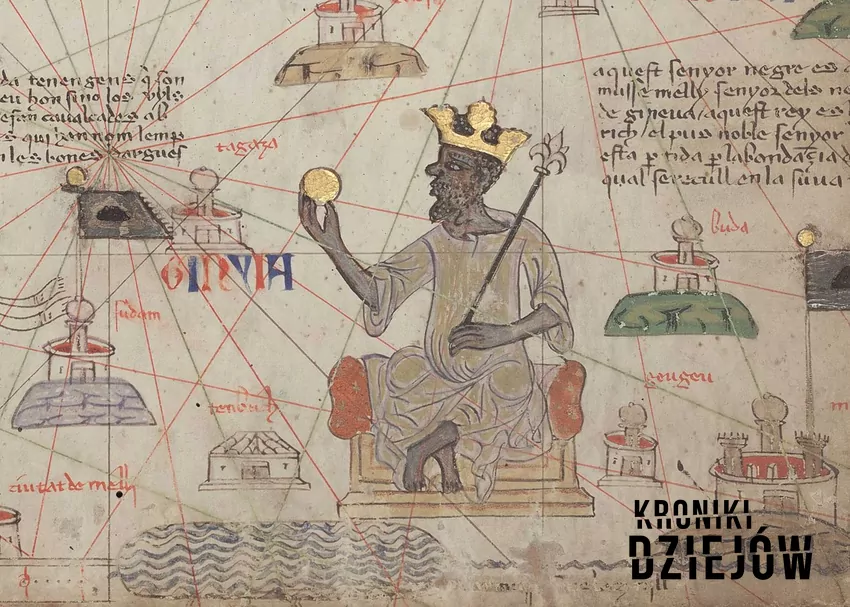 da tenen gens q̃ son
eu hon sino los vyls
efan caualcades ab
s qui han nom lemp
n les bones dargues
aquest senyor negre es a
musse melly senyor dels ne
de gineua / aquest rey es l
rich / el pus noble senyor
esta ptida p labondãzia d
qual se recull en la suua
tagaza
GINYIA
buda
sudam
tenbuch
geugeu
m
ciutat de melly
KRONIKI
DZIEJÓW